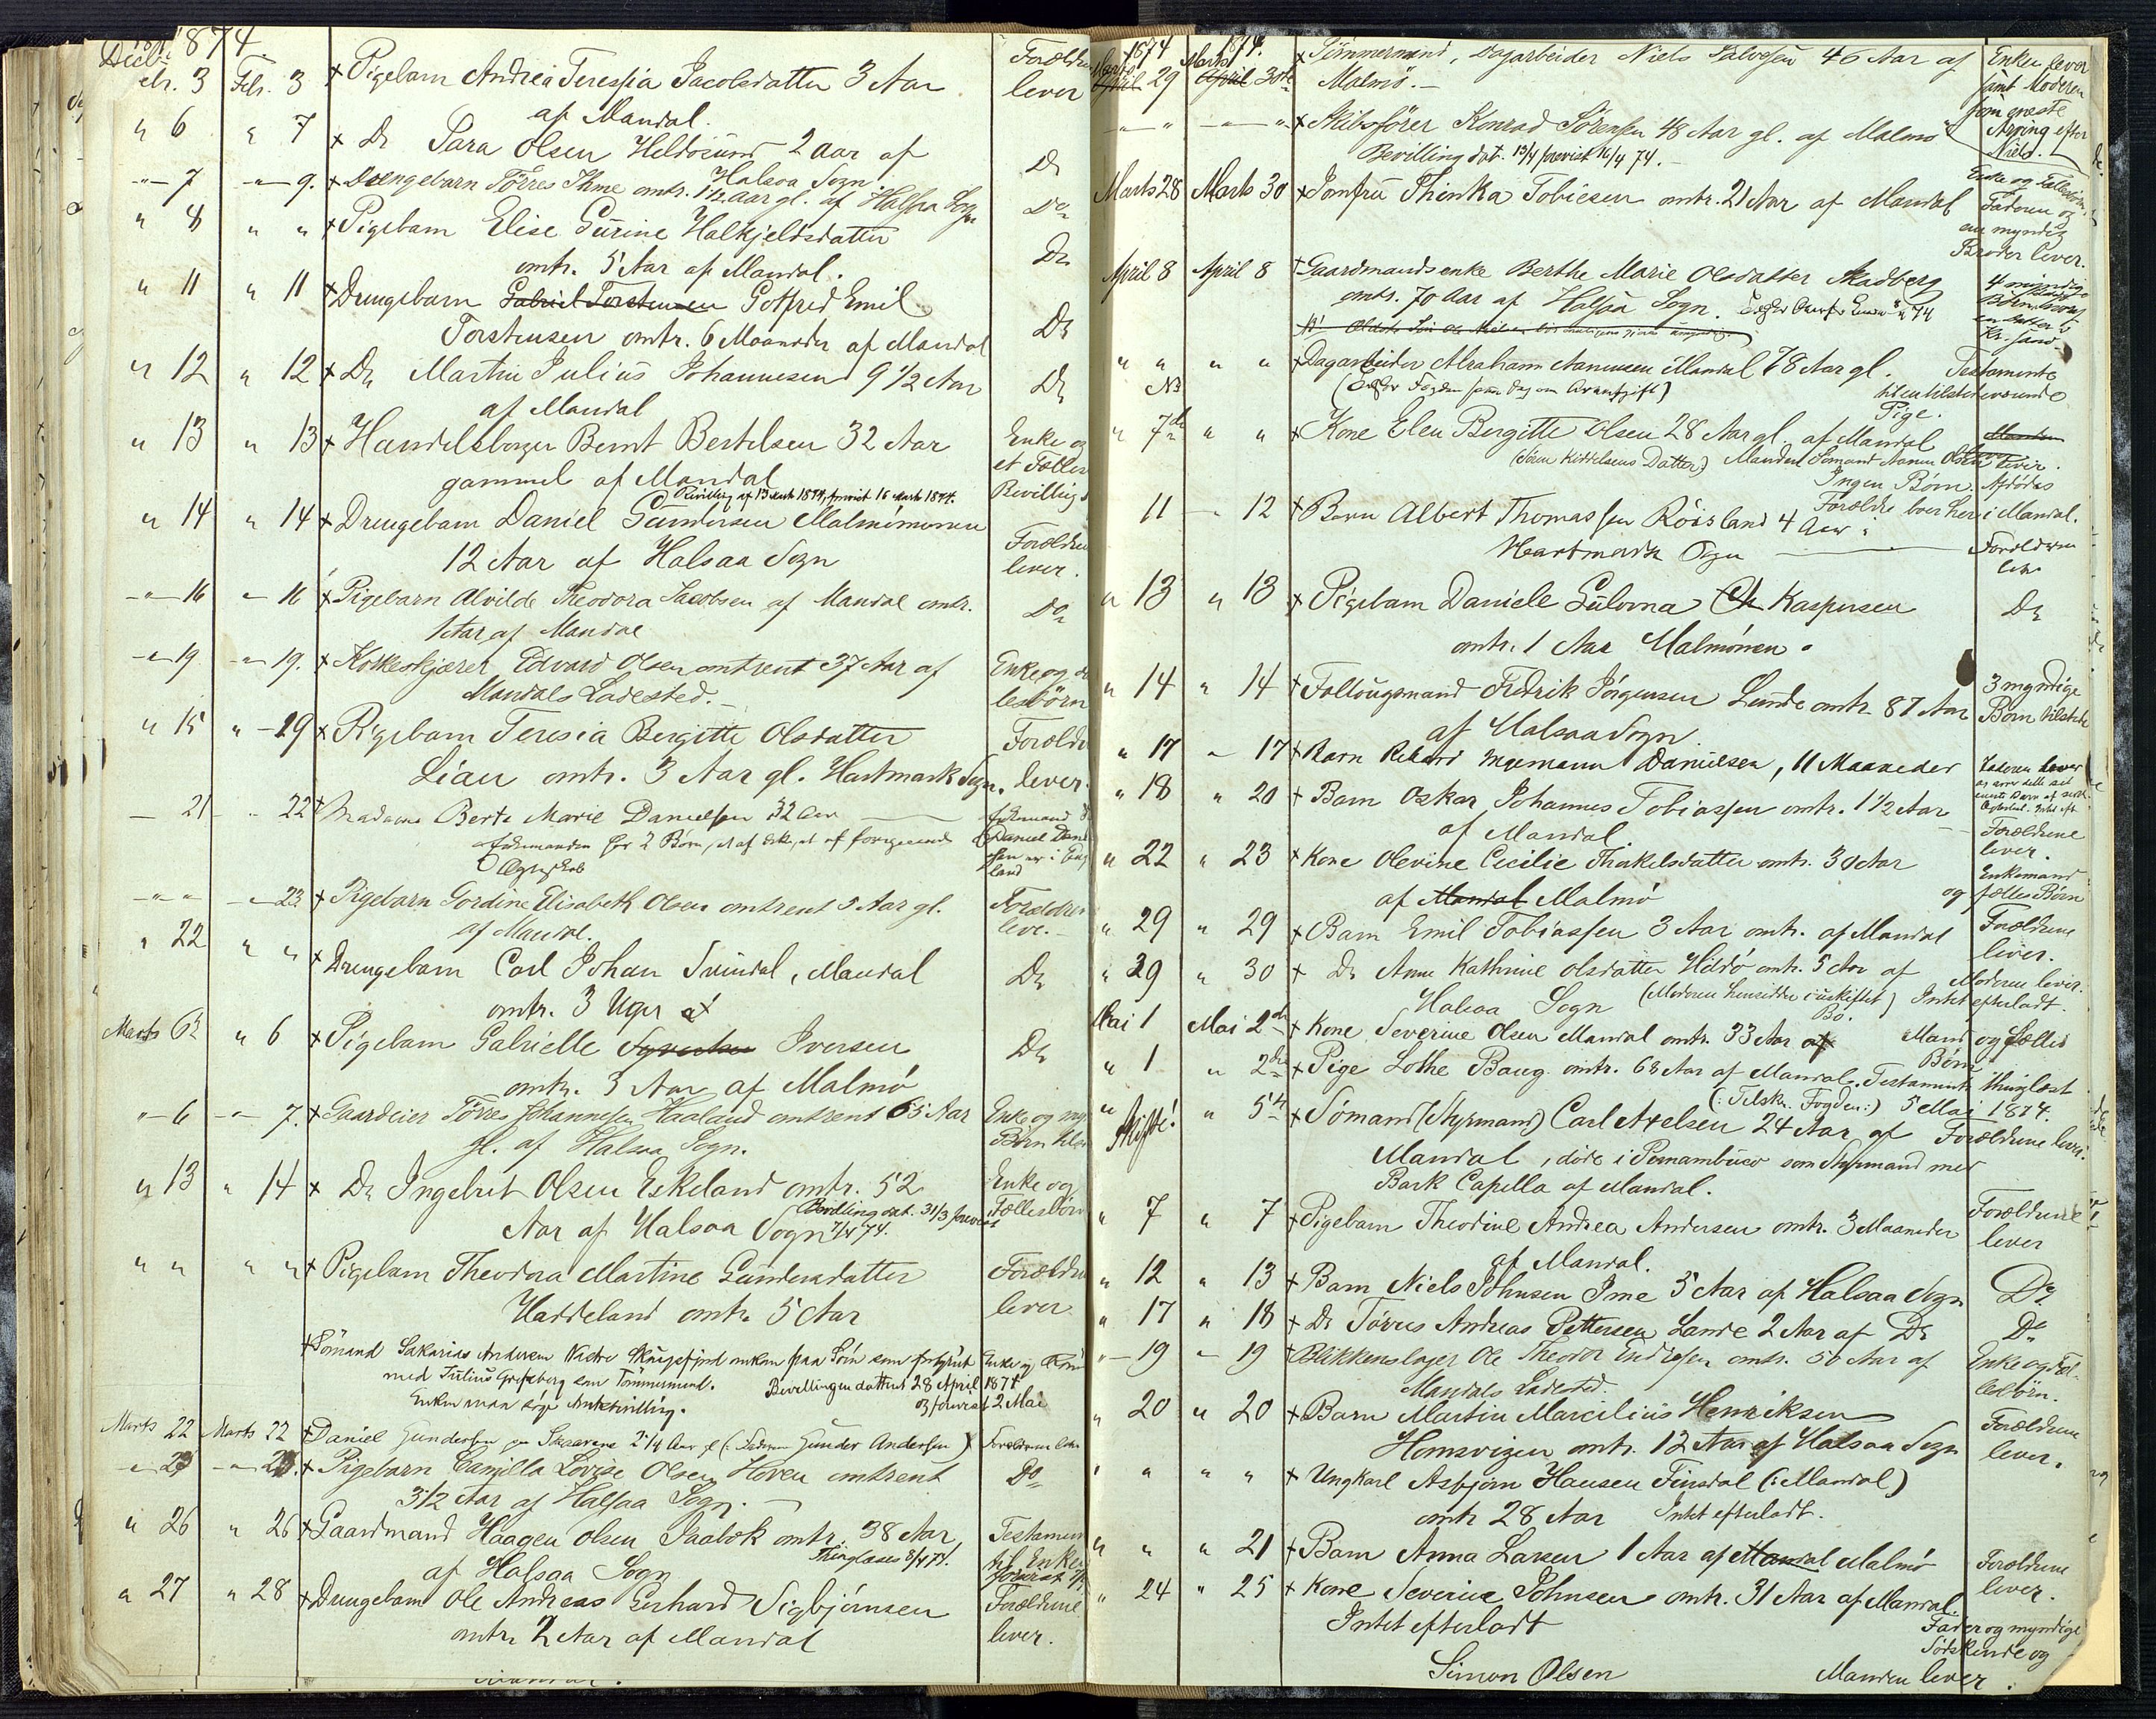 1874.
Febr. 3 Febr. 3 x Pigebarn Andrea Teresia Jacobsdatter 3 Aar Forældre
af Mandal. lever
" 6 " 7 x Do Sara Olsen Heldøsund 2 Aar af Do
Halsaa Sogn
-"- 7 -"- 9. x Drengebarn Tørres Ime omtr. 1 1/2 Aar gl. af Halsaa Sogn Do
" 8 " " x Pigebarn Elise Gurine Halkjeldsdatter Do
omtr. 5 Aar af Mandal.
" 11 " 11 x Drengebarn Gabriel Torstensen Gotfred Emil
Torstensen omtr. 6 Maaneder af Mandal Do
" 12 " 12 x Do Martin Julius Johannesen 9 1/2 Aar Do
af Mandal
" 13 " 13 x Handelsborger Bernt Bertelsen 32 Aar Enke og
gammel af Mandal et Fælles
Bevilling af 13 Marts 1874, forevist 16 Marts 1874. Bevilling
" 14 " 14 x Drengebarn Daniel Gundersen Malmømonen Forældre
12 Aar af Halsaa Sogn lever.
-"- 16 -"- 16 x Pigebarn Alvilde Theodora Jacobsen af Mandal omtr. Do
1 Aar af Mandal
-"- 19 -"- 19. x Korkeskjærer Edvard Olsen omtrent 37 Aar af Enke og
Mandals Ladested. lesbörn
" 15 " -19 x Pigebarn Teresia Bergitte Olsdatter Forældr
Liau omtr. 3 Aar gl. Hartmark Sogn. lever.
- 21 - 22 x Madame Berte Marie Danielsen 32 Aar Enkemand
Enkemanden har 2 Børn, et af dette, et af foregaaende Daniel Dani
Ægteskab sen er i Eng
land
-"-"- -"- 23 x Pigebarn Gordine Elisabeth Olsen omtrent 5 Aar gl. Forældre
af Mandal. leve.
" 22 " " x Drengebarn Carl Johan Svindal, Mandal Do
omtr. 3 Uger
Marts 6 " 6 x Pigebarn Gabrielle Iversen Do
omtr. 3 Aar af Malmø
-"- 6 -"- 7. x Gaardeier Tørres Johannesen Haaland omtrent 65 Aar Enke og my
gl. af Halsaa Sogn. Børn
" 13 " 14 x Do Ingebret Olsen Eskeland omtr. 52 Enke og
Aar af Halsaa Sogn Bevilling dat. 31/3 forevist 7/4 74. Fællesbörn
" " " " x Pigebarn Theodora Martine Gundersdatter Forældre
Haddeland omtr. 5 Aar lever
x Sömand Sakarias Andersen omkom paa Söen Enke og
med Julius som Tömmermand. Bevillingen datteret 28 April 1874
Enken maa söge Bevilling. og forevist 2 Mai
Marts 22 Marts 22 x Daniel Gundersen 2 1/4 Aar gl (: Faderen Gunder Andersen) Forældrene lever
-"- 23 -"- 23. x Pigebarn Camilla Lovise Olsen Hoven omtrent Do
3 1/2 Aar af Halsaa Sogn.
" 26 " 26 x Gaardmand Haagen Olsen omtr. 38 Aar Testamen
af Halsaa Sogn Thinglæses 8/4 74! til Enken
" 27 " 28 x Drengebarn Ole Andreas Gerhard Sigbjørnsen Forældrene
omtr. 2 Aar af Mandal lever.
1874 1874.
Marts April 29 Marts April 30te x Tømmermand, Dagarbeider Niels Salvesen 46 Aar af Enken lever
Malmø. samt Moderen
som næste
-"- -"- x Skibsfører Konrad Sørensen 48 Aar gl. af Malmø Arving efter
Bevilling dat. 15/4 forevist 16/4 74. Niels.
Enke og Fællesbörn
Marts 28 Marts 30 x Jomfru Thinka Tobiesen omtr. 21 Aar af Mandal Faderen og
en myndig
Broder lever.
April 8 April 8 x Gaardmandsenke Berthe Marie Olsdatter Skadberg 4 myndige
omtr. 70 Aar af Halsaa Sogn.
" " " " x Dagarbeider Abraham Aanensen Mandal 78 Aar gl. Testamente
NB (Fogden samme Dag om Arveafgift) til en tilstedeværende
Pige.
" 7de " " x Kone Elen Bergitte Olsen 28 Aar gl. af Mandal Manden
(Sören Kittelsens Datter) Manden Sömand Aanen Olsen lever.
Ingen Børn. Afdødes
Forældre boer her i Mandal.
11 - 12 x Barn Albert Thomassen Röisland 4 Aar i
Hartmark Sogn Forældrene
lever
" 13 " 13 x Pigebarn Daniele Gulovna Kaspersen Do
omtr. 1 Aar Malmömen.
" 14 " 14 x Follougsmand Fredrik Jörgensen Lunde omtr. 87 Aar 3 myndige
af Halsaa Sogn Børn tilstede
" 17 - 17 x Barn Rikard Ingemann Danielsen, 11 Maaneder Faderen lever
" 18 " 20 x Barn Oskar Johannes Tobiassen omtr. 1 1/2 Aar
af Mandal. Forældrene
lever.
" 22 " 23 x Kone Olevine Cecilie Thorkelsdatter omtr. 30 Aar Enkemand
af Mandal Malmö og fælles Børn
" 29 " 29 x Barn Emil Tobiassen 3 Aar omtr. af Mandal Forældrene
lever.
" 29 " 30 x Do Anne Kathrine Olsdatter Hildö omtr. 5 Aar af Moderen lever.
Halsaa Sogn (Moderen hensidder i uskiftet Bo.) Intet efterladt.
Mai 1 Mai 2den x Kone Severine Olsen Mandal omtr. 33 Aar af Mand og Fælles
Børn
" 1 " 2den x Pige Lothe Baug omtr. 68 Aar af Mandal. Testamente thinglæst
(: Tilskr. Fogden:) 5 Mai 1874.
" Skifte! " 5te x Sömand (Styrmand) Carl Axelsen 24 Aar af Forældrene lever.
Mandal, döde i Pernambuco som Styrmand med
Bark Capella af Mandal.
" 7 " 7 x Pigebarn Theodine Andrea Andersen omtr. 3 Maaneder Forældrene
af Mandal. lever
" 12 " 13 x Barn Niels Johnsen Ime 5 Aar af Halsaa Sogn Do.
" 17 " 18 x Do Törres Andreas Pettersen Lande 2 Aar af Do Do
"- 19 - 19 x Blikkenslager Ole Theodor Endresen omtr. 50 Aar af Enke og Fæl-
Mandals Ladested. lesbörn.
" 20 " 20 x Barn Martin Marcilius Henriksen Forældrene
Homsvigen omtr. 12 Aar af Halsaa Sogn lever.
" " " " x Ungkarl Asbjørn Hansen Finsdal (: Mandal)
omtr 28 Aar Intet efterladt.
" " " 21 x Barn Anna Larsen 1 Aar af Mandal Malmö Forældrene
lever.
" 24 " 25 x Kone Severine Johnsen omtr. 31 Aar af Mandal.
Intet efterladt Fader og myndige
Södskende og
Simon Olsen Manden lever.